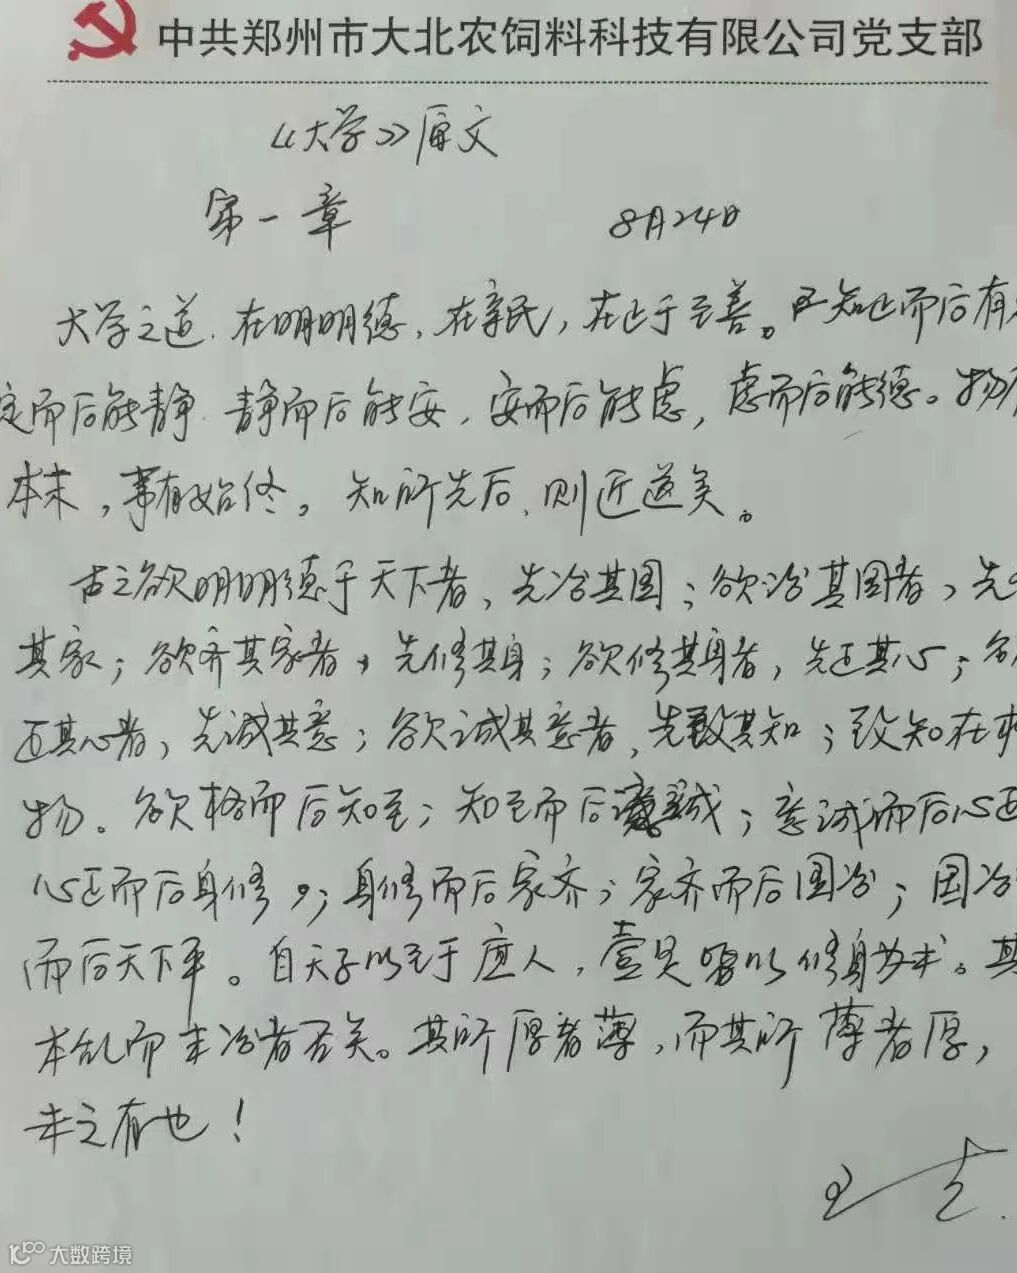 中共郑州市大北农饲料科技有限公司党支部
《大学》原文
第一章 8月24日
大学之道.在明明德,在亲民,在止于至善。知止而后有
定而后能静.静而后能安,安而后能虑,虑而后能德。物
本末,事有始终。知所先后,则近道矣。
古之欲明明德于天下者,先治其国;欲治其国者,先
其家;欲齐其家者,先修其身;欲修其身者,先正其心;欲
正其心者,先诚其意;欲诚其意者,先致其知;致知在格
物。欲格而后知至;知至而后诚;意诚而后心正
心正而后身修。;身修而后家齐;家齐而后国治;国治
而后天下平。自天子以至于庶人,壹是皆以修身为本。其
本乱而末治者否矣。其所厚者薄,而其所薄者厚,
未之有也!
大数跨境